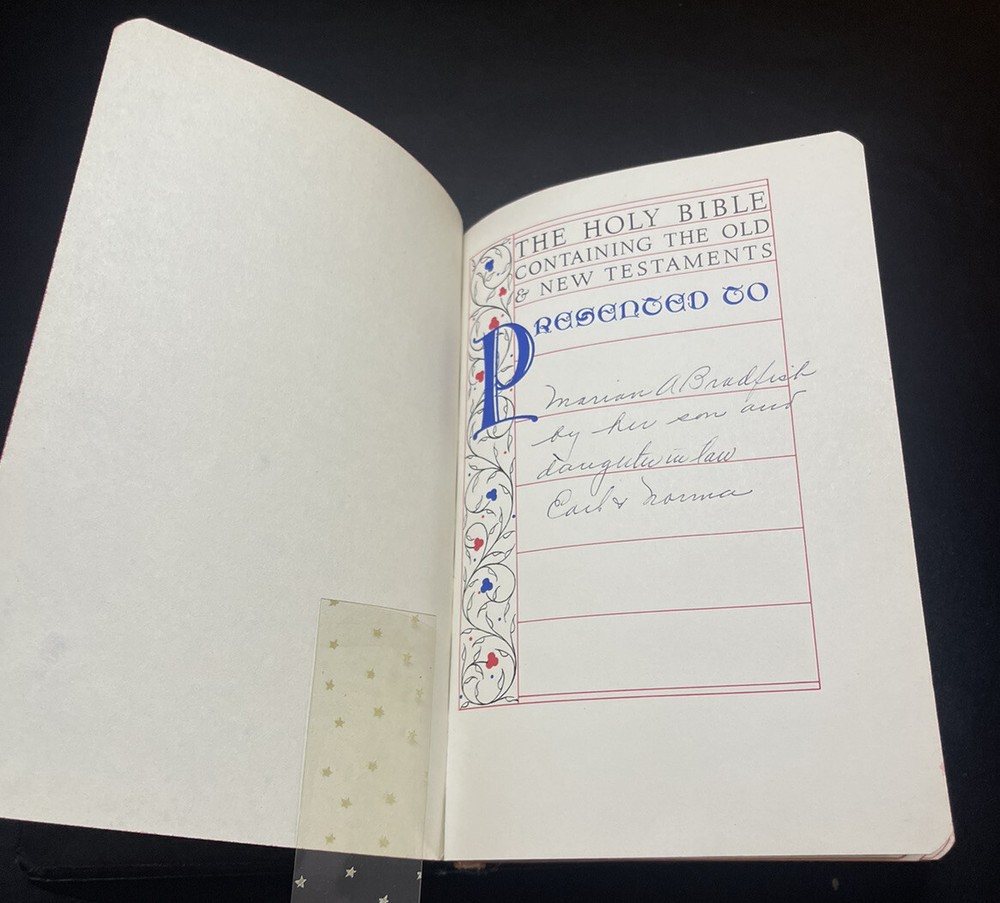 THE HOLY BIBLE
CONTAINING THE OLD
& NEW TESTAMENTS
PRESENTED TO
Marian A Bradfish
by her son and
daughter in law
Earl & Norma